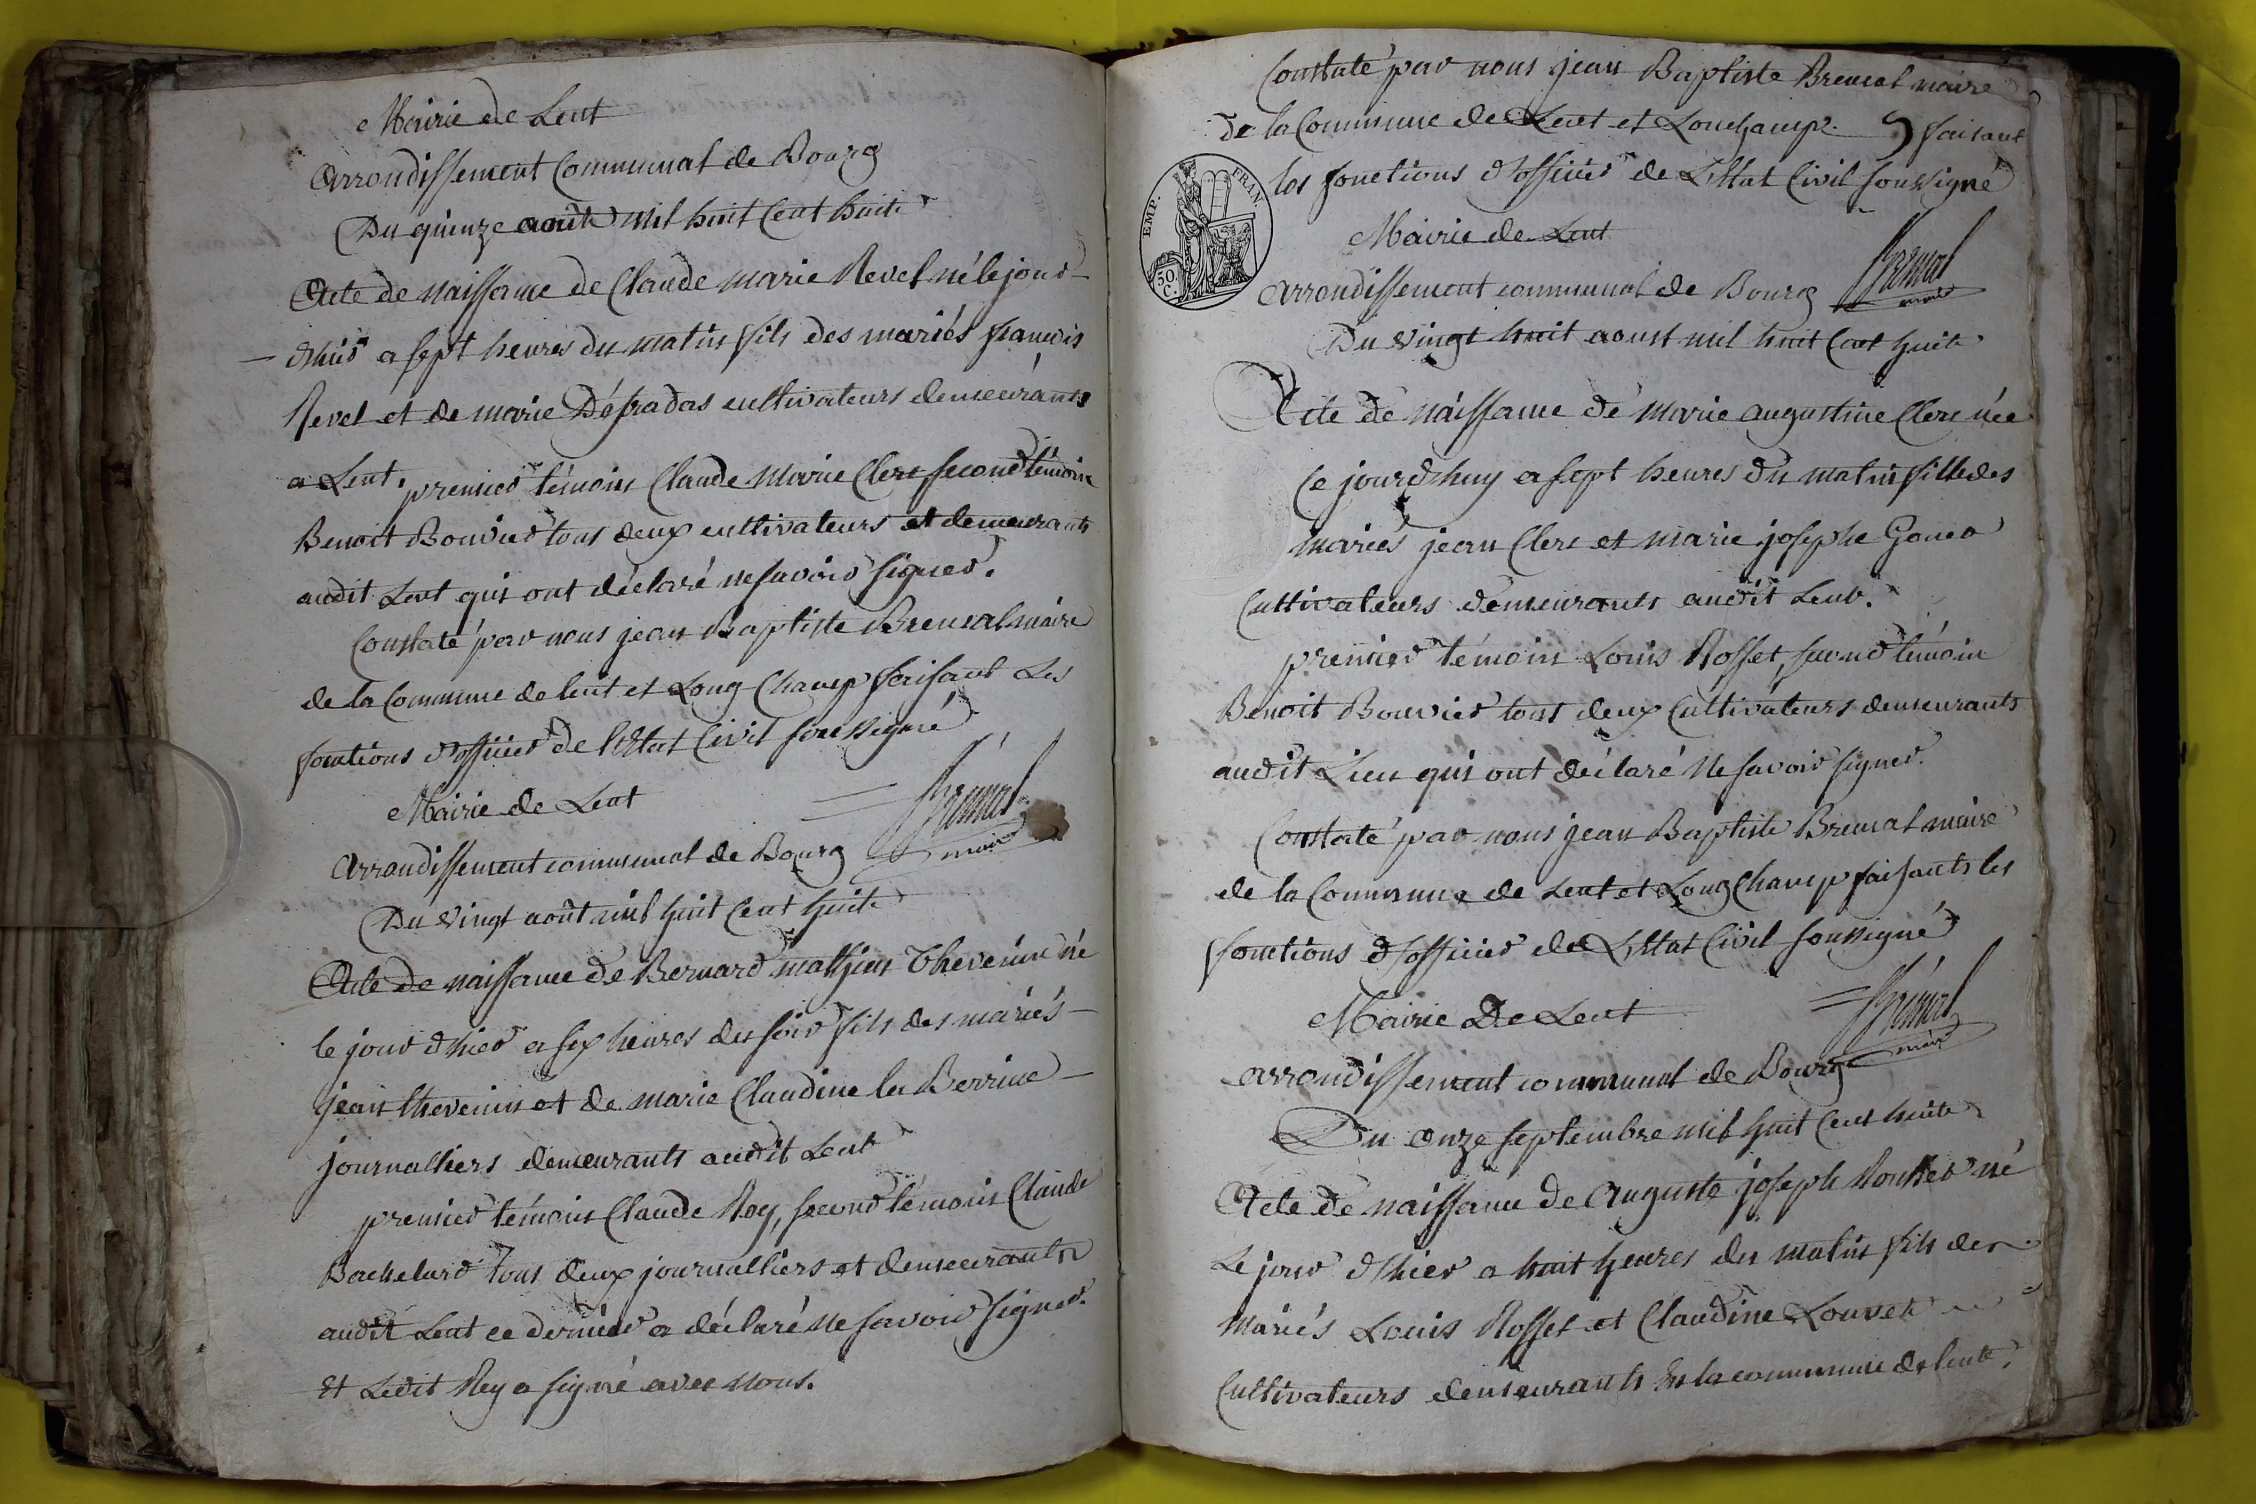 Mairie de Lent
Arrondissement Communal de Bourg
Du quinze août mil huit Cent huit
Acte de naissance de Claude marie Revel né le jour
d'hier a sept heures du matin fils des mariés francois
Revel et de marie Défradas cultivateurs demeurants
a Lent. premier témoin Claude Marie Clerc, second témoin
Benoit Bouvier tous deux cultivateurs et demeurants
audit Lent qui ont déclaré ne savoir signer.
Constaté par nous jean Baptiste Breuval maire
de la Commune de lent et Long Champ faisant Les
fonctions d'officier de l'Etat Civil soussigné
Mairie de Lent
maire
Arrondissement communal de Bourg
Du vingt août mil huit Cent huit
Acte de naissance de Bernard mathieu Thevenin né
le jour d'hier a six heures du soir fils des mariés
jean thevenin et de marie Claudine la Berrine
journalliers demeurants audit Lent
premier témoin Claude Rey, second témoin Claude
Bachelard tous deux journalliers et demeurants
audit Lent ce dernier a déclaré ne savoir signer
Et Ledit Rey a signé avec nous.
Constaté par nous jean Baptiste Breuval maire
de la Commune de Lent et Lonchamp faisant
les fonctions d'officier de L'Etat Civil soussigné
EMP. FRAN.
50 C.
Mairie de Lent
Arrondissement communal de Bourg
maire
Du vingt huit aoust mil huit Cent huit
Acte de naissance de marie augustine Clerc née
Ce jourd'huy a sept heures du matin fille des
mariés jean Clerc et marie josephe
Cultivateurs demeurants audit Lent.
premier témoin Louis Rosset, second témoin
Benoit Bouvier tous deux Cultivateurs demeurants
audit Lieu qui ont déclaré Ne savoir signer.
Constaté par nous jean Baptiste Breuval maire
de la Commune de Lent et Long Champ faisants les
fonctions d'officier de L'Etat Civil soussigné
Mairie De Lent
maire
arrondissement communal de Bourg
Du onze septembre mil huit Cent huit
Acte de naissance de Auguste joseph né
Le jour d'hier a huit heures du matin fils des
Mariés Louis Rosset et Claudine Louvet
Cultivateurs demeurants En la commune de lent.